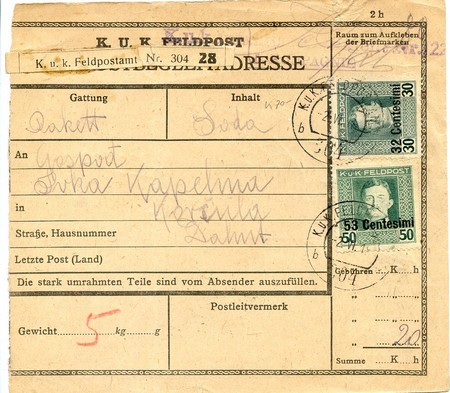 2 h
K. U. K. FELDPOST
Raum zum Aufkleben
der Briefmarken
K. u. k. Feldpostamt Nr. 304 28
ADRESSE
Gattung
Inhalt
Pakett
Soda
An
Gospođ
Ivka Kapelina
in
Korčula
Straße, Hausnummer
Dalmt
Letzte Post (Land)
Die stark umrahmten Teile sind vom Absender auszufüllen.
Gewicht 5 kg g
Postleitvermerk
30 30
32 Centesimi
K.u.K. FELDPOST
53 Centesimi
50 50
Gebühren K h
„ „
„ „
„ 20
Summe K h